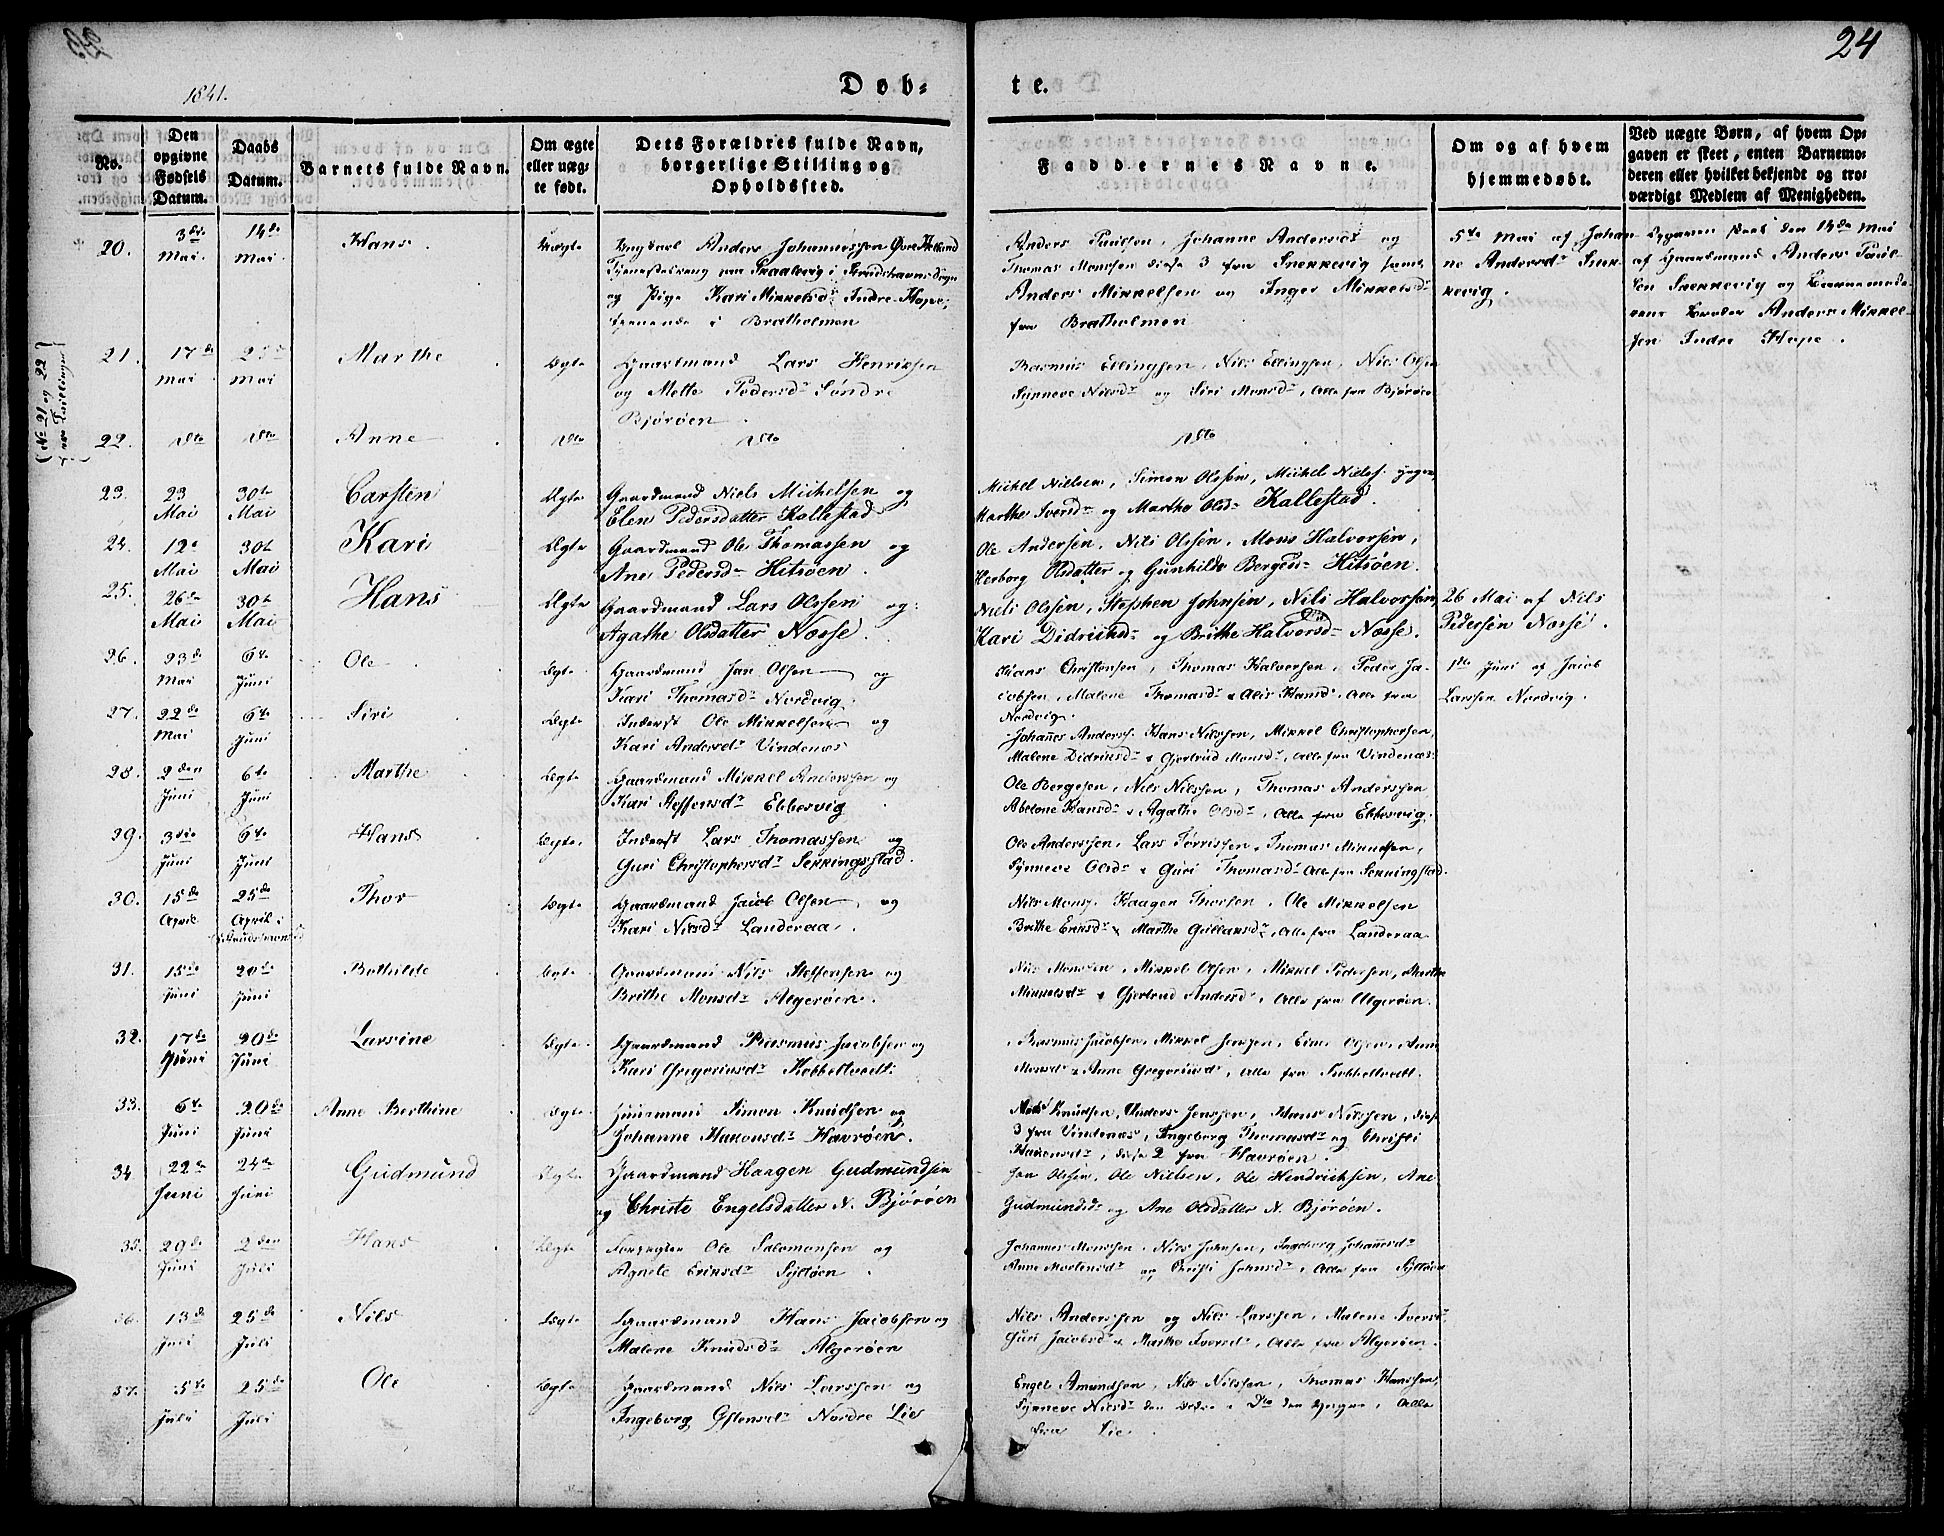 24
1841.
Døb-
te.
No.
Den opgivne Fødsels Datum.
Daabs Datum.
Barnets fulde Navn.
Om ægte eller uægte født.
Dets Forældres fulde Navn, borgerlige Stilling og Opholdssted.
Faddernes Navne.
Om og af hvem hjemmedøbt.
Ved uægte Børn, af hvem Opgaven er skeet, enten Barnemoderen eller hvilket bekjendt og troværdigt Medlem af Menigheden.
20. 3die Mai 14de Mai Hans Uægte
Ungkarl Anders Johannessen
og Pige Kari Mikkelsdr Indre Hope,
tjenende i Bratholmen
Anders Paulsen, Johanne Andersdr og
Thomas Monsen disse 3 fra Snekkevig samt
Anders Mikkelsen og Inger Mikkelsdr
fra Bratholmen
5te Mai af Johan-
ne Andersdr Snek-
kevig.
Opgaven skeet den 14de Mai
af Gaardmand Anders Paul-
sen Snekkevig og Barnemode-
rens Broder Anders Mikkel-
sen Indre Hope.
(No 21 og 22 ere Tvillinger)
21. 17de Mai Mai Marthe Ægte
Gaardmand Lars Henriksen
og Mette Pedersdr Søndre
Bjorøen
Rasmus Ellingsen, Nils Ellingsen, Nils Olsen
Synneve Nilsdr og Siri Monsdr, Alle fra Bjørøen
22. Dto Dto Anne Dto
Dto
Dto
23. 23 Mai 30te Mai Carsten Ægte
Gaardmand Niels Michelsen og
Elen Pedersdatter Kallestad
Michel Nielsen, Simon Olssen, Michel Nielss. yngre,
Marthe Iversdr og Marthe Olsdr Kallestad.
24. 12te Mai 30te Mai Kari Ægte
Gaardmand Ole Thomassen og
Ane Pedersdr Hitsøen.
Ole Andersen, Nils Olssen, Mons Halvorsen,
Herborg Olsdatter og Gunhilde Bergesdr Hitsøen.
25. 26de Mai 30te Mai Hans Ægte
Gaardmand Lars Olssen og
Agathe Olsdatter Nesse.
Niels Olssen, Stephen Johnsen, Nils Halvorsen,
Kari Didriksdr og Brithe Halvorsdr Nosse.
26 Mai af Nils
Pedersen Nosse.
26. 23de Mai 6te Juni Ole Ægte
Gaardmand Jan Olsen og
Kari Thomasdr Nordvig.
Hans Christensen, Thomas Halvorsen, Peder Ja-
cobsen, Malene Thomasdr & Alis Hansdr, Alle fra
Nordvig.
1ste Juni af Jacob
Larssen Nordvig.
27. 22de Mai 6te Juni Siri Ægte
Inderst Ole Mikkelsen og
Kari Andersdr Vindenæs
Johannes Anderss. Hans Nilssen, Mikkel Christophersen,
Malene Didriksdr & Gjertrud Monsdr, Alle fra Vindenæs.
28. 2den Juni 6te Juni Marthe Ægte
Gaardmand Mikkel Anderssen og
Kari Steffensdr Ebbesvig
Ole Bergesen, Nils Nilssen, Thomas Anderssen
Abelone Hansdr & Agathe Olsdr, Alle fra Ebbesvig.
29. 3die Juni 6te Juni Hans Ægte
Inderst Lars Thomassen og
Guri Christophersdr Sekkingstad.
Ole Anderssen, Lars Torrissen, Thomas Knudsen,
Synneve Olsdr & Guri Thomasdr Alle fra Sekkingstad.
30. 15de April 25de April Thor Ægte
Gaardmand Jacob Olsen og
Kari Nilsdr Landeraa.
Nils Monss. Haagen Thorsen, Ole Mikkelsen
Brithe Eriksdr & Marthe Gullaksdr, Alle fra Landeraa
31. 15de Juni 20de Juni Bothilde Ægte
Gaardmand Nils Steffensen og
Brithe Monsdr Algerøen.
Nils Monsen, Mikkel Olsen, Mikkel Pedersen, Marthe
Mikkelsdr & Gjertrud Andersdr, Alle fra Algerøen.
32. 17de Juni 20de Juni Larsine Ægte
Gaardmand Rasmus Jacobsen og
Kari Gregoriusdr Kobbeltvedt.
Rasmus Jacobsen, Mikkel Jensen, Olsen, Anne
Monsdr & Anne Gregoriusdr, Alle fra Kobbeltvedt.
33. 6te Juni 20de Juni Anne Berthine Ægte
Huusmand Simon Knudsen og
Johanne Hakonsdr Havrøen.
Knudsen, Anders Jenssen, Hans Nilssen, disse
3 fra Vindenæs, Ingeborg Thomasdr og Christi
Hakensdr, disse 2 fra Havrøen.
34 22de Juni 24de Juni Gudmund Ægte
Gaardmand Haagen Gudmundsen
og Christe Engelsdatter N. Bjørøen
Jon Olssen, Ole Nielsen, Ole Hendrichsen, Ane
Gudmundsdr og Ane Olsdatter N. Bjorøen.
35. 29de Juni 2den Juli Hans Ægte
Ole Salomonsen og
Agnete Eriksdr Syltøen.
Johannes Monssen, Nils Johnsen, Ingeborg Johannesdr
Anne Mortensdr og Christi Johnsdr, Alle fra Syltøen
36. 13de Juli 25de Juli Nils Ægte
Gaardmand Hans Jacobsen og
Malene Knudsdr Algerøen
Nils Anderssen og Nils Larssen, Malene Iversdr
Guri Jacobsdr & Marthe Iversdr, Alle fra Algerøen.
37. 5te Juli 25de Juli Ole Ægte
Gaardmand Nils Larssen og
Ingeborg Østensdr Nordre Lie
Engel Amundsen, Nils Nilssen, Thomas Hanssen,
Synneve Nilsdr den ældre & Dto den yngre, Alle
fra Lie.